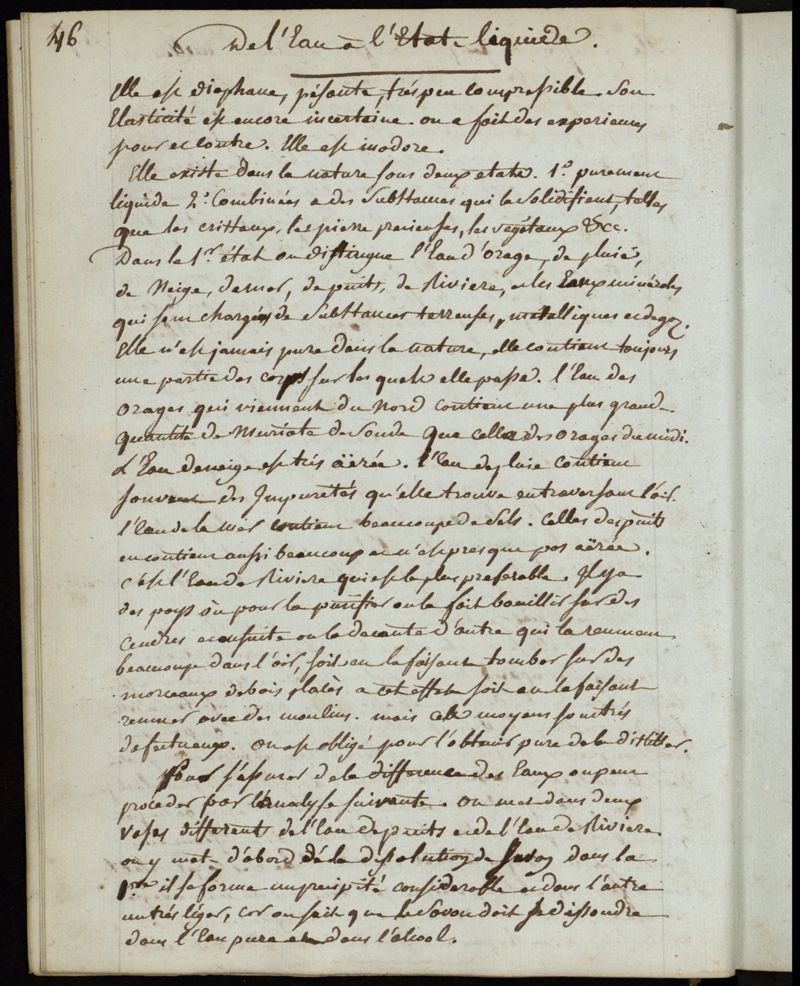 46
De l'Eau à l'Etat liquide.
Elle est diaphane, pésante, trés peu compressible. Son
Elasticité est encore incertaine. on a fait des experiences
pour et contre. Elle est inodore.
Elle existe dans la nature sous deux etats. 1.° purement
liquide 2.° Combinées a des Substances qui la Solidifient, telles
que les cristaux, les pierre precieuses, les végétaux &cc.
Dans le 1.er état on distingue l'Eau d'orage, de pluie,
de Neige, de mer, de puits, de Riviere, et les Eaux minérales
qui sont chargées de Substances terreuses, métalliques et de gaz.
Elle n'est jamais pure dans la nature, elle contient toujours
une partie des corps sur les quels elle passe. l'Eau des
orages qui viennent du Nord contient une plus grande
quantité de Muriate de Soude que celle des orages du midi.
L'Eau de neige est trés äérée. l'Eau de pluie contient
souvent des Impuretés qu'elle trouve en traversant l'air.
l'Eau de la Mer contient beaucoup de Sels. Celles des puits
en contient aussi beaucoup et n'est presque pas aërée.
c'est l'Eau de Riviere qui est la plus preferable. Il y a
des pays où pour la purifier on la fait bouillir sur des
Cendres et ensuite on la decante d'autre qui la remuent
beaucoup dans l'air, soit en la faisant tomber sur des
morceaux de bois platés a cet effet soit en la faisant
remuer avec des moulins. mais ces moyens sont trés
defectueux. on est obligé pour l'obtenir pure de la distiller.
Pour s'assurer de la difference des Eaux on peut
proceder par l'analyse suivante. on met dans deux
vases différents de l'Eau de puits et de l'Eau de Riviere
on y met d'abord de la dissolution de Savon dans la
1.ere il se forme un precipité considerable et dans l'autre
un trés léger, car on sait que le Savon doit se dissoudre
dans l'Eau pure et dans l'alcool.